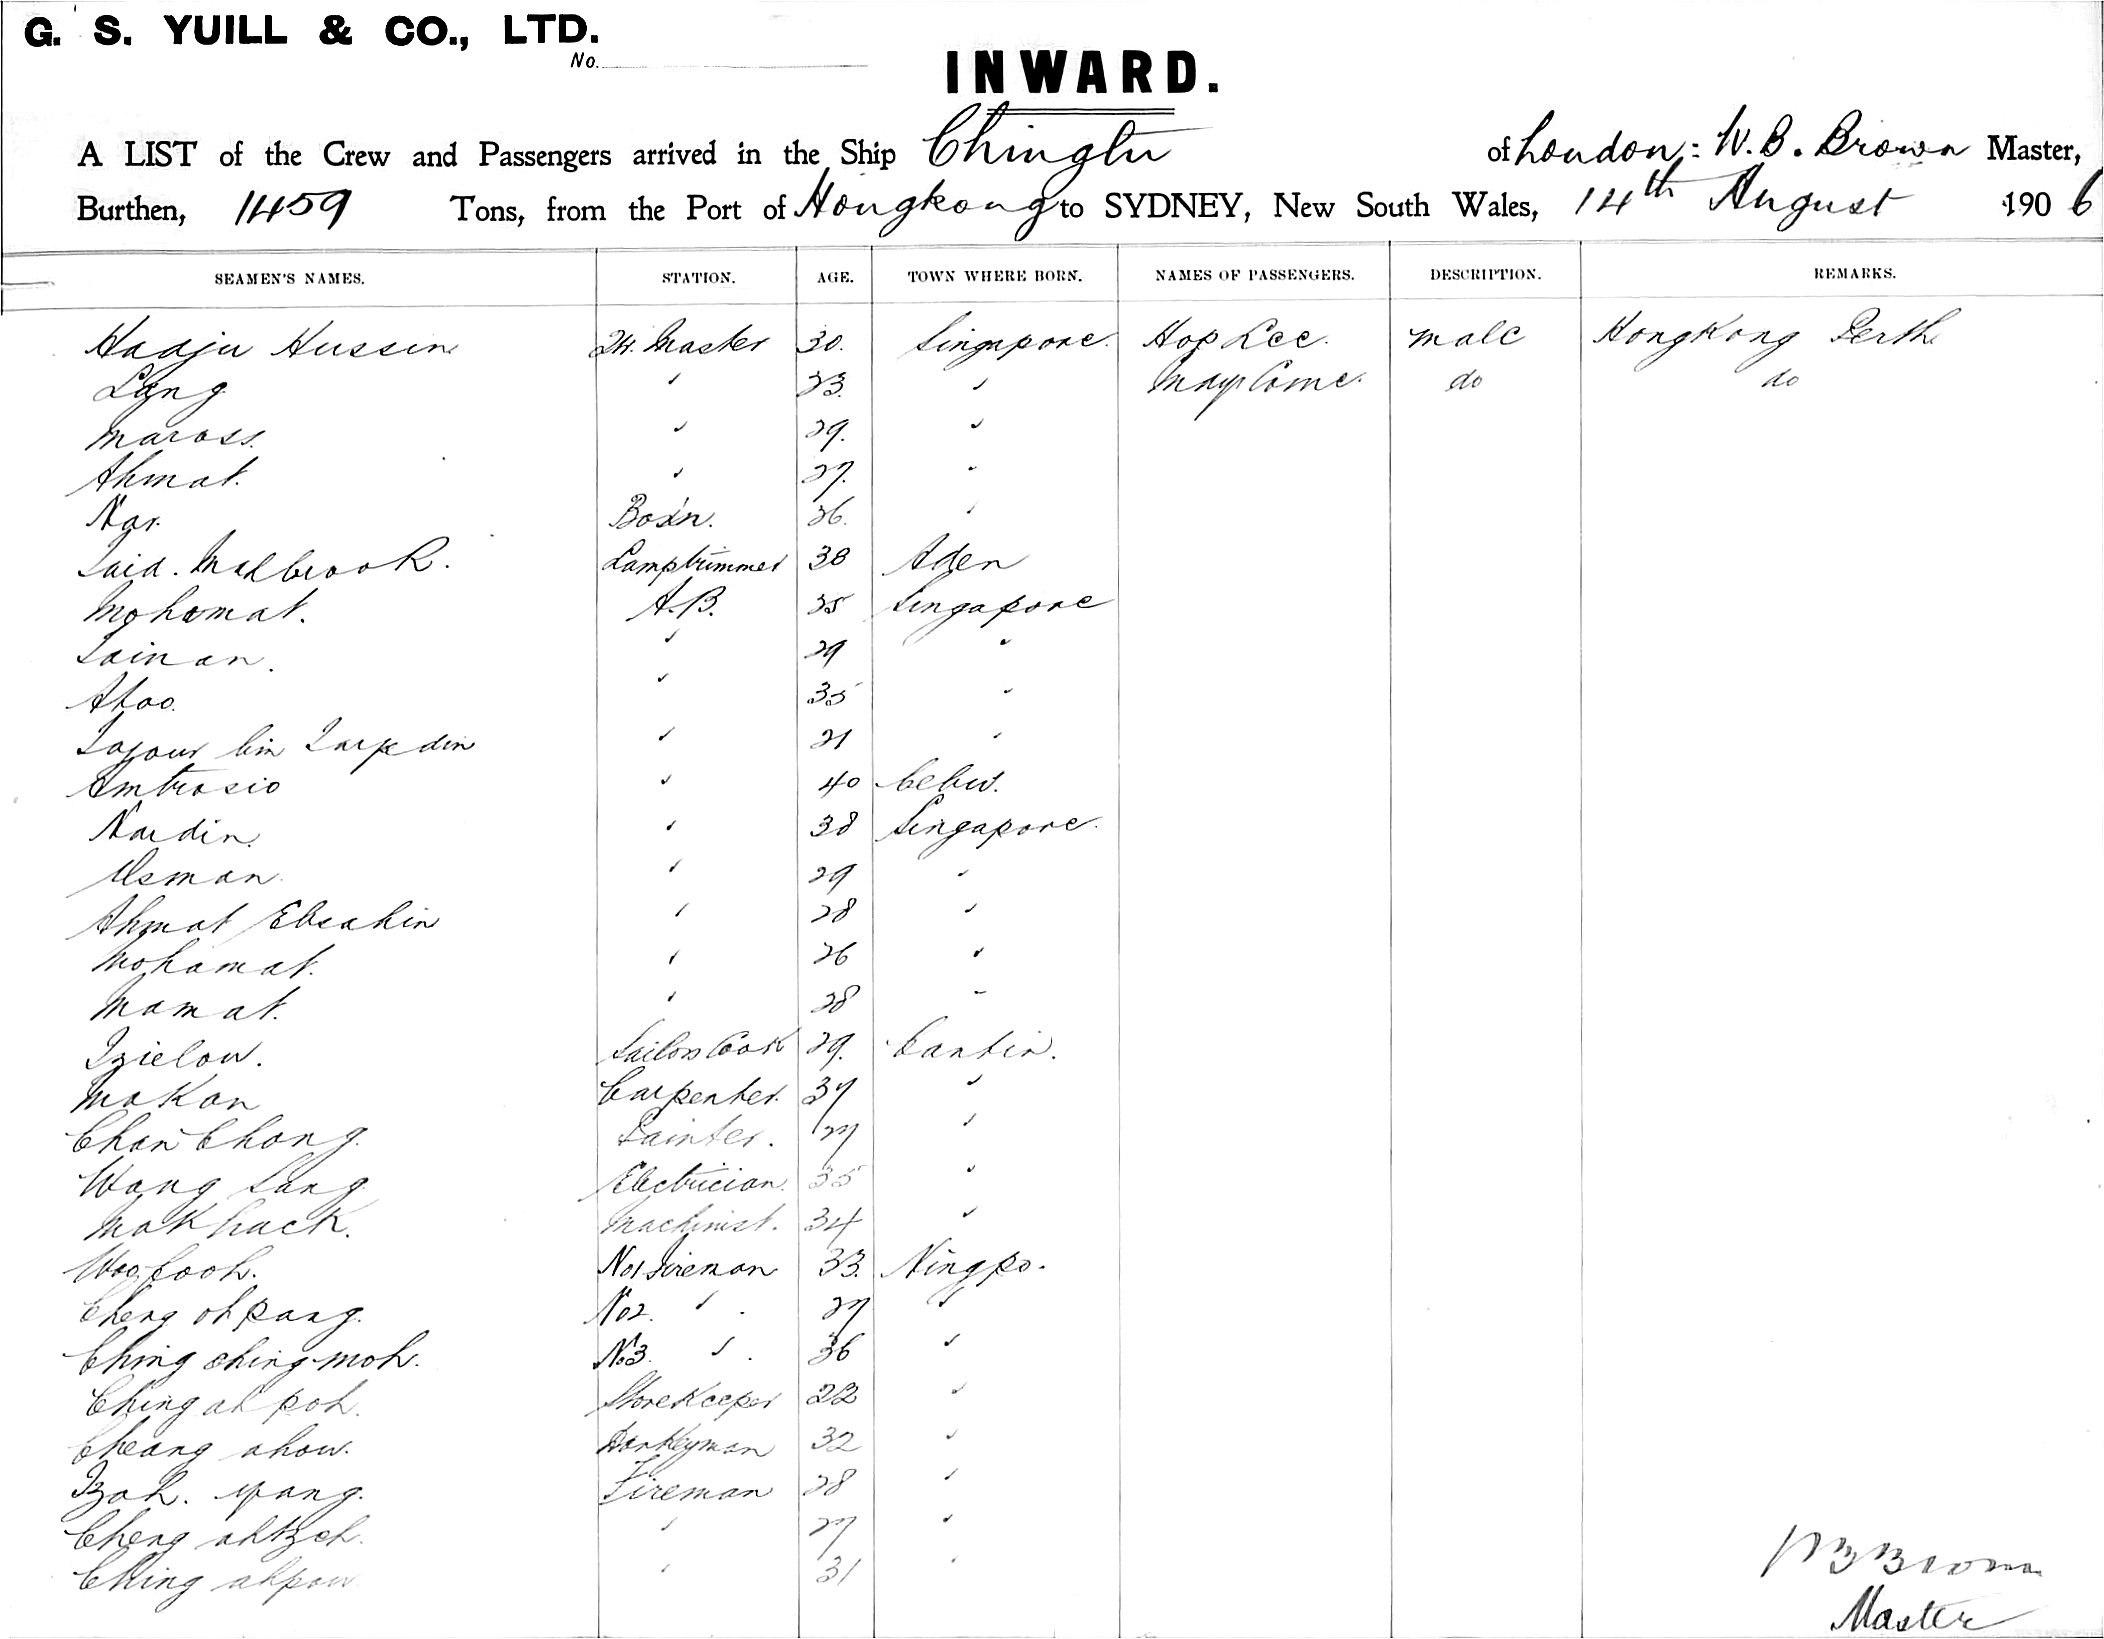 G. S. YUILL & CO., LTD.
No.
INWARD.
A LIST of the Crew and Passengers arrived in the Ship Chingtu of London: W. B. Brown Master,
Burthen, 1459 Tons, from the Port of Hongkong to SYDNEY, New South Wales, 14th August 1906
SEAMEN'S NAMES. STATION. AGE. TOWN WHERE BORN. NAMES OF PASSENGERS. DESCRIPTION. REMARKS.
Hadju Hussin Qr. Master 30. Singapore. Hop Lee. male HongKong Perth
" 33. " do do
Maross. " 29. "
Ahmat. " 27. "
Bos'n. 36. "
Said. Lamptrimmer 38 Aden
Mohomat. A.B. 35 Singapore
Sainan. " 29 "
" 35 "
bin " 21 "
Ambrosio " 40 Cebu.
Nardin. " 38 Singapore.
Usman. " 29 "
Ahmat Ebrahin " 28 "
Mohamat. " 26 "
Mamat. " 28 "
Sailors Cook 29. Canton.
MaKan Carpenter. 37 "
Chan Chong. Painter. 27 "
Wong Sang Electrician. 35 "
Mak Machinist. 34 "
Woo No1 Fireman 33. Ningpo.
Cheng ah pang. No2. " 27 "
Ching ching moh. No3. " 36 "
Ching ah poh. StoreKeeper 22 "
Cheang ahow. Donkeyman 32 "
Fireman 28 "
Cheng ahtzeh. " 27 "
Ching ahpow " 31 "
W B Brown
Master